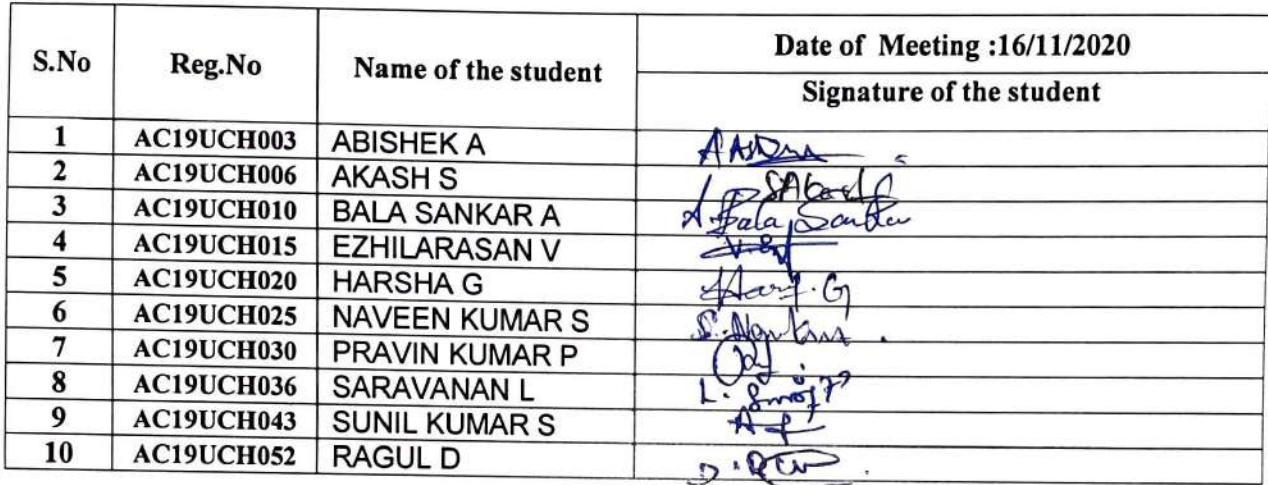 S.No Reg.No Name of the student Date of Meeting :16/11/2020
Signature of the student
1 AC19UCH003 ABISHEK A
2 AC19UCH006 AKASH S
3 AC19UCH010 BALA SANKAR A A. Bala Sankar
4 AC19UCH015 EZHILARASAN V
5 AC19UCH020 HARSHA G
6 AC19UCH025 NAVEEN KUMAR S
7 AC19UCH030 PRAVIN KUMAR P
8 AC19UCH036 SARAVANAN L
9 AC19UCH043 SUNIL KUMAR S
10 AC19UCH052 RAGUL D